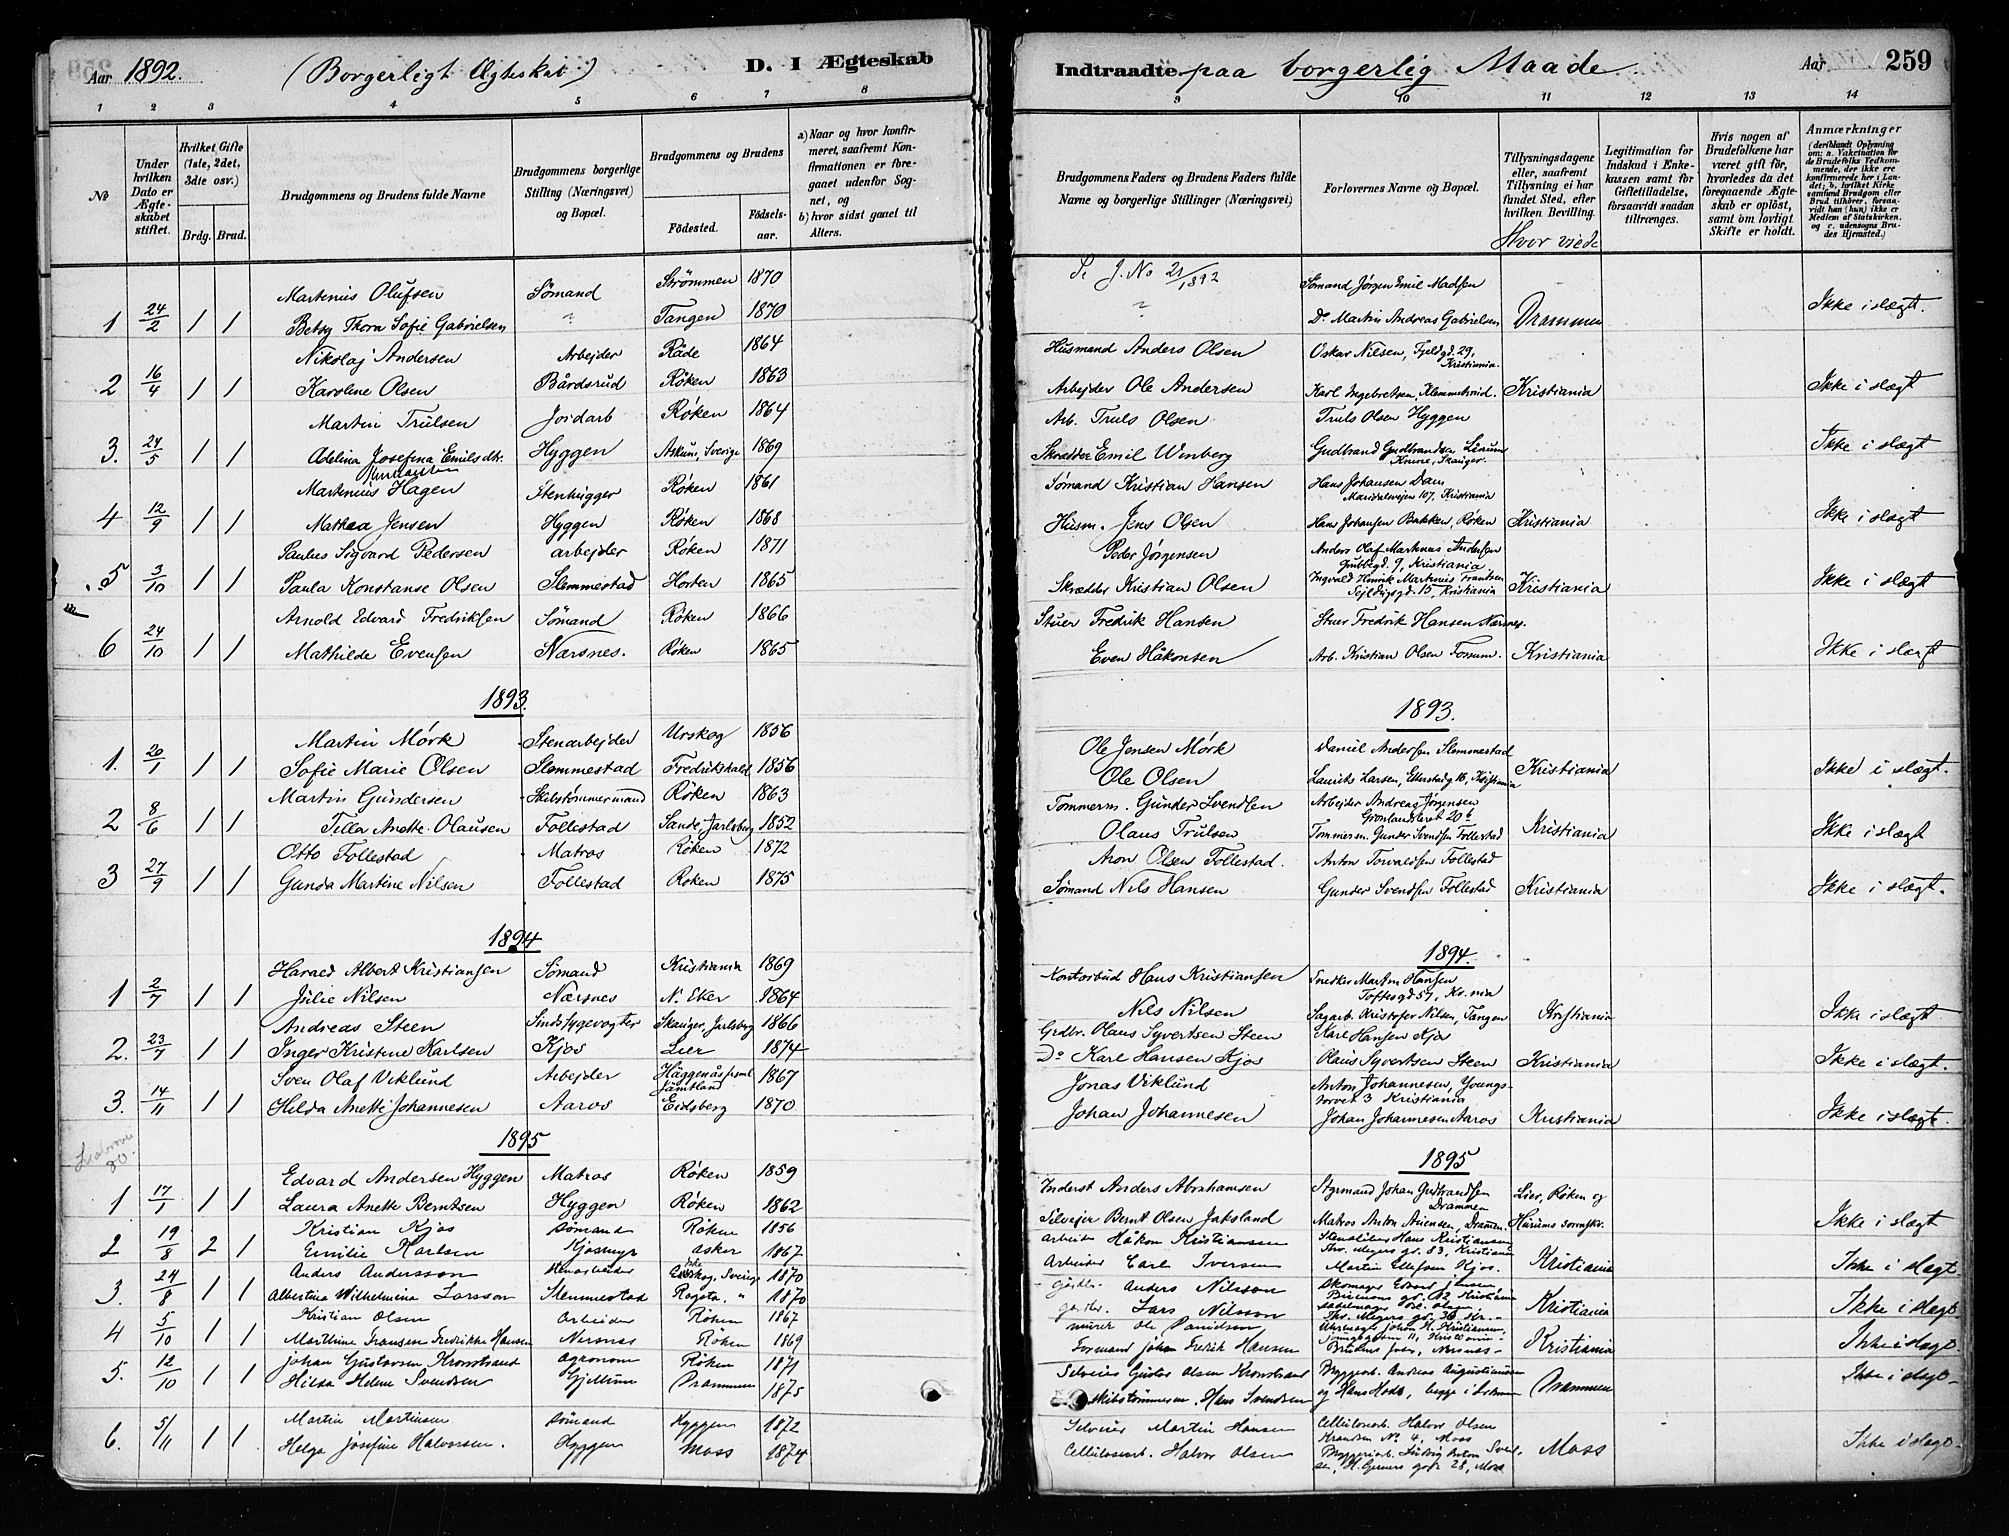 Aar 1892. (Borgerligt Ægteskab) D. I Ægteskab
1 2 3 4 5 6 7 8
No
Under hvilken Dato er Ægteskabet stiftet.
Hvilket Gifte (1ste, 2det, 3die osv.)
Brdg. Brud.
Brudgommens og Brudens fulde Navne
Brudgommens borgerlige Stilling (Næringsvei) og Bopæl.
Brudgommens og Brudens
Födested. Födselsaar.
a) Naar og hvor konfirmeret, saafremt Konfirmationen er foregaaet udenfor Sognet, og
b) hvor sidst gaaet til Alters.
Martenius Olufsen Sömand Strömmen 1870
1 24/2 1 1 Betsy Thora Sofie Gabrielsen " Tangen 1870
Nikolaj Andersen Arbejder Råde 1864
2 16/4 1 1 Karoline Olsen Bårdsrud Røken 1863
Martin Trulsen Jordarb Røken 1864
3. 24/5 1 1 Adelina Josefina Emilsdtr. Hyggen Askum, Sverige 1869
Martenius Hagen Stenhugger Røken 1861
4 12/9 1 1 Mathea Jensen Hyggen Røken 1868
Paulus Sigvard Pedersen arbejder Røken 1871
5 3/10 1 1 Paula Konstanse Olsen Slemmestad Horten 1865
Arnold Edvard Fredriksen Sömand Røken 1866
6 24/10 1 1 Mathilde Evensen Nærsnes. Røken 1865
1893.
Martin Mørk Stenarbejder Urskog 1856
1. 20/1 1 1 Sofie Marie Olsen Slemmestad Fredrikshald 1856
Martin Gundersen Skibstømmermand Røken 1863
2 8/6 1 1 Tilla Anette Olausen Follestad Sande, Jarlsberg 1852
Otto Follestad Matros Røken 1872
3 27/9 1 1 Gunda Martine Nilsen Follestad Røken 1875
1894
Harald Albert Kristiansen Sömand Kristiania 1869
1 2/7 1 1 Julie Nilsen Nærsnes N. Eker 1864
Andreas Steen Sindssygevogter Skauger, Jarlsberg 1866
2. 23/7 1 1 Inger Kristine Karlsen Kjos Lier 1874
Sven Olaf Viklund Arbejder Häggenås Jämtland 1867
3. 14/11 1 1 Hilda Anette Johannesen Aaros Eidsberg 1870
1895
Edvard Andersen Hyggen Matros Røken 1859
1 17/1 1 1 Laura Anette Berntsen Hyggen Røken 1862
Kristian Kjos Sömand Røken 1856
2 19/8 2 1 Emilie Karlsen Kjosmyr asker 1867
Anders Andersson Stenarbeider Sverige 1870
3. 24/8 1 1 Albertina Wilhelmina Larsson Slemmestad Rogsta, " 1870
Kristian Olsen Arbeider Røken 1867
4 5/10 1 1 Marthine Fransen Fredrikke Hansen Nersnes Røken 1869
Johan Gustavsen Kronstrand agronom Røken 1871
5. 12/10 1 1 Hilda Helene Svendsen Gjellum Drammen 1875
Martin Martinsen Sømand Hyggen 1872
6. 5/11 1 1 Helga Josefine Halvorsen. Hyggen Moss 1874
Indtraadte paa borgerlig Maade Aar 259
9 10 11 12 13 14
Brudgommens Faders og Brudens Faders fulde Navne og borgerlige Stillinger (Næringsvei)
Forlovernes Navne og Bopæl.
Tillysningsdagene eller, saafremt Tillysning ei har fundet Sted, efter hvilken Bevilling.
Hvor viede
Legitimation for Indskud i Enkekassen samt for Giftetilladelse, forsaavidt saadan tiltrænges.
Hvis nogen af Brudefolkene har været gift för, hvorledes da det foregaaende Ægteskab er oplöst, samt om lovligt Skifte er holdt.
Anmærkninger (deriblandt Oplysning om: a. Vakcination for de Brudefolks Vedkommende, der ikke ere konfirmerede her i Landet; b. hvilket Kirkesamfund Brudgom eller Brud tilhörer, forsaavidt han (hun) ikke er Medlem af Statskirken, og c. udensogns Brudes Hjemsted.)
J. No 21/1892 Sömand Jørgen Emil Madsen
" Do Martin Andreas Gabrielsen Drammen Ikke i slægt.
Husmand Anders Olsen Oskar Nilsen, Fjeldgd. 29, Kristiania.
Arbejder Ole Andersen Karl Ingebretsen, Klemmetsrud. Kristiania Ikke i slægt
Arb. Truls Olsen Truls Olsen Hyggen
Skrædder Emil Winberg Gudbrand Gudbrandsen Skauger. Ikke i slægt
Sømand Kristian Hansen Hans Johansen Dam Maridalsvejen 107, Kristiania
Husm. Jens Olsen Hans Johansen Bakken, Røken Kristiania Ikke i slægt
Peder Jørgensen Anders Olaf Martinus Andersen Gubbegd. 9, Kristiania
Skrædder Kristian Olsen Ingvald Henrik Martinius Frantsen Sejldugsgd. 15, Kristiania Kristiania Ikke i slægt
Stuer Fredrik Hansen Stuer Fredrik Hansen Nærsnes.
Even Håkonsen Arb. Kristian Olsen Fossum. Kristiania Ikke i slægt
1893.
Ole Jensen Mørk Daniel Andersen Slemmestad
Ole Olsen Laurits Larsen, Kristiania Kristiania Ikke i slægt.
Tømmerm. Gunder Svendsen Arbejder Andreas Jørgensen Grønlandsleret 20b
Olaus Trulsen Tømmerm. Gunder Svendsen Follestad Kristiania Ikke i slægt
Aron Olsen Follestad. Anton Torvaldsen Follestad
Sømand Nils Hansen Gunder Svendsen Follestad Kristiania Ikke i slægt.
1894.
Kontorbud Hans Kristiansen Snedker Martin Hansen Toftesgd 57, Kr.nia
Nils Nilsen Sagarb. Kristofer Nilsen, Tangen Kristiania Ikke i slægt
Grdbr. Olaus Syvertsen Steen Karl Hansen Kjos
Do Karl Hansen Kjos Olaus Syvertsen Steen Kristiania Ikke i slægt.
Jonas Viklund Anton Johannesen, Youngstorvet 3 Kristiania
Johan Johannesen Johan Johannesen Aaros Kristiania Ikke i slægt.
1895
Inderst Anders Abrahamsen Styrmand Johan Gudbrandsen Drammen Lier, Røken og
Selvejer Bernt Olsen Jaksland Matros Anton Drammen. Hurums sorenskr. Ikke i slægt
arbeider Håkon Kristianssen Hans Kristiansen Thv. Meyers gd. 83, Kristiania
Arbeider Carl Iversen Martin Ellefsen Kjos. Kristiania Ikke i slægt.
gårdbr. Anders Nilsson Skomager Edvard Jensen
gårdbr. Lars Nilsson Kristiania Ikke i slægt.
murer Ole Danielsson
Formand Johan Fredrik Hansen Nersnes- Kristiania Ikke i slægt.
Selveier Gustav Olsen Kronstrand Byggearb. Andreas Augustinussen
Skibstømmerm. Hans Svendsen og Hans Moda, begge i Drammen Ikke i slægt.
Selveier Martin Hansen Cellulosearb. Halvor Olsen Kransen No 4, Moss
Cellulosearb. Halvor Olsen Bryggeriarb. Ludvig Anton Svendsen, H. Gerners gade 28, Moss Moss Ikke i slægt.